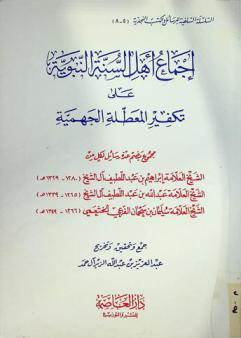 السلسلة السلفية للرسائل والكتب النجدية (٥-٨)
إجماع أهل السنة النبوية
على
تكفير المعطلة الجهمية
مجموع يضم عدة رسائل لكل من
الشيخ العلامة إبراهيم بن عبد اللطيف آل الشيخ (١٢٨٠-١٣٢٩هـ)
الشيخ العلامة عبد الله بن عبد اللطيف آل الشيخ (١٢٦٥-١٣٣٩هـ)
الشيخ العلامة سليمان بن سحمان الفزعي الخثعمي (١٢٦٦-١٣٤٩هـ)
جمع وتحقيق وتخريج
عبد العزيز بن عبد الله الزير آل حمد
دار العاصمة
للنشر والتوزيع